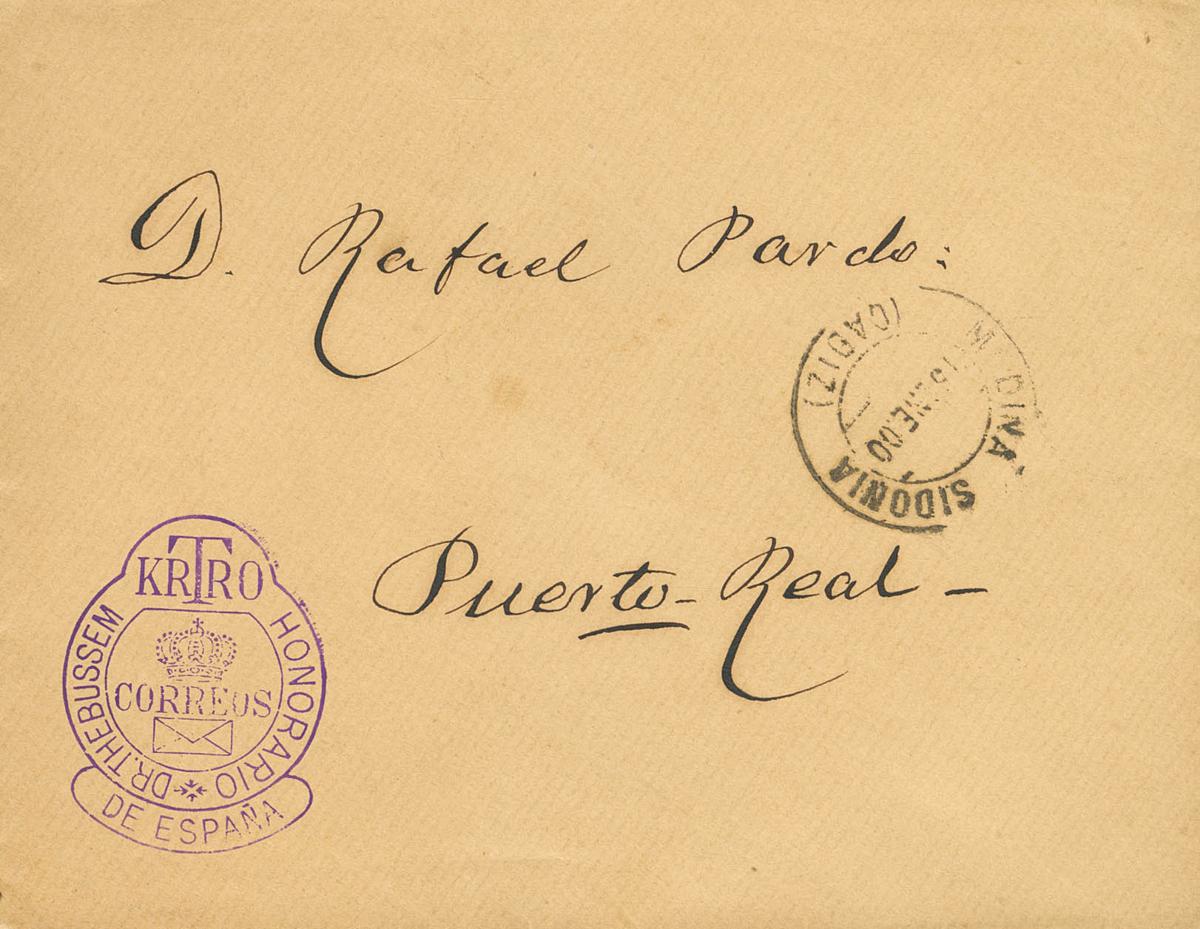 D. Rafael Pardo:
MEDINA SIDONIA
(CADIZ)
15 ENE.00
Puerto-Real-
KRTRO
DR. THEBUSSEM HONORARIO
CORREOS
DE ESPAÑA